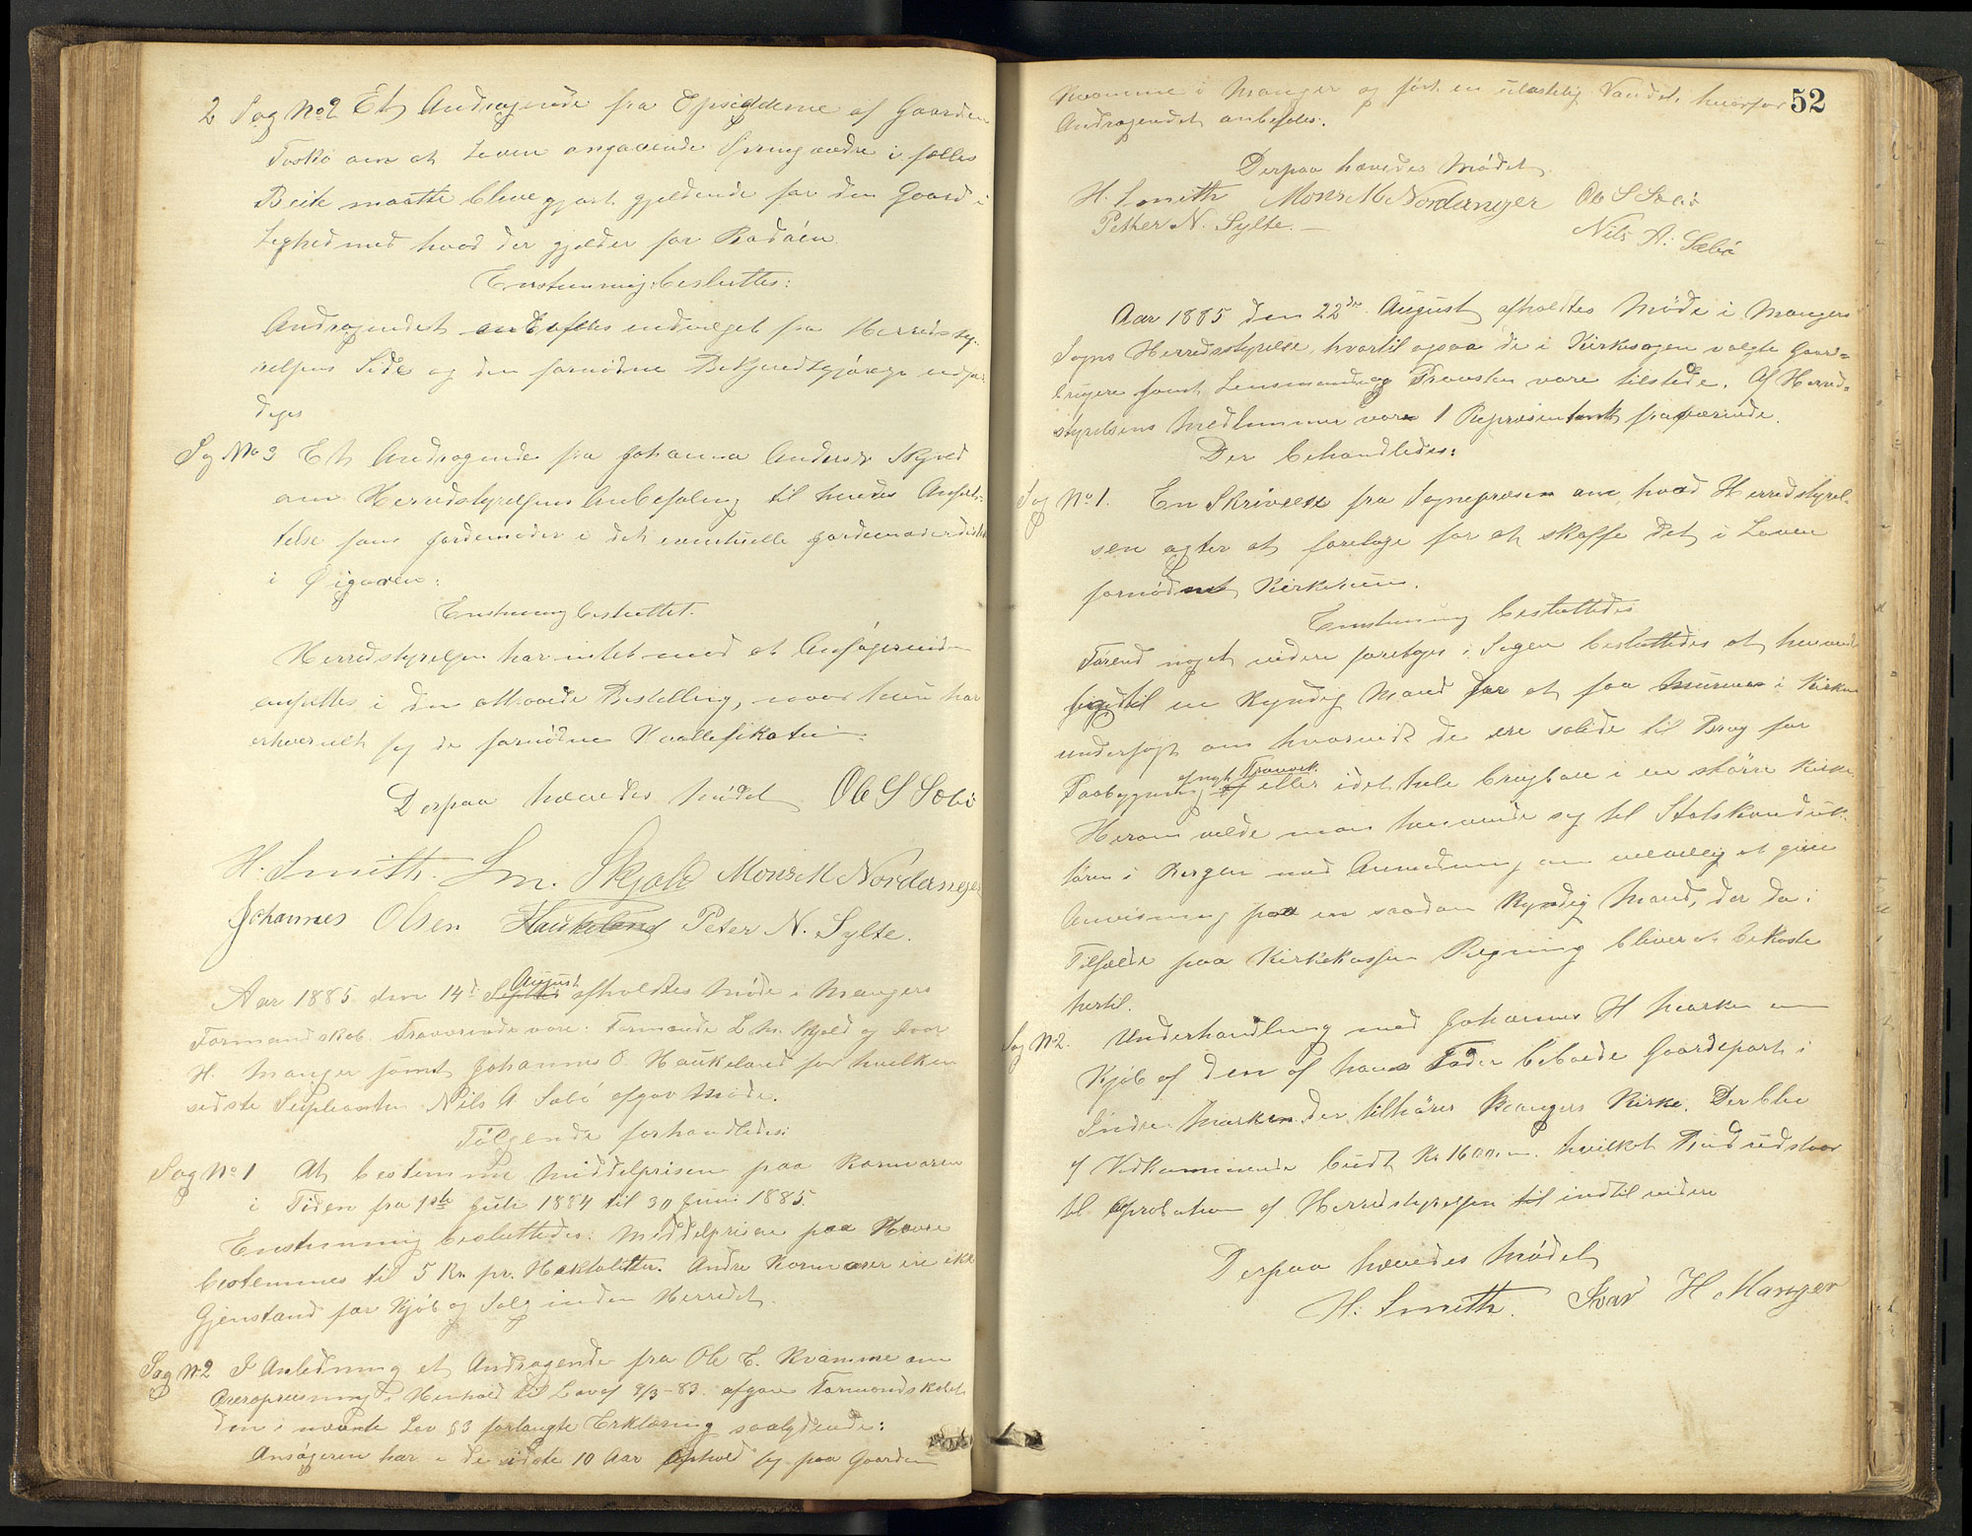 2 Sag No 2 Et Andragende fra Opsidderne af Gaarden
Toskø om at Loven angaaende Springvædre i fælles
Beite maatte blive gjort gjeldende for den Gaard i
Lighed med hvad der gjelder for Radøen
Enstemmig besluttes:
Andragendet anbefales undveget fra Herredsty-
relsens Side og den fornødne Bekjendtgjørelse udfær-
diges
Sag No 3 Et Andragende fra Johanna Andersd Skjold
om Herredstyrelsens Anbefaling til hendes Ansæt-
telse som Jordemoder i det eventuelle Jordemoderdistrikt
i Øigaren:
Enstemmig besluttet.
Herredstyrelsen har intet mod at Ansøgerinden
ansættes i den attraaede Bestilling, naar hun har
erhvervet sig de fornødne Kvallefikationer.
Derpaa hævedes Mødet Ole S Sæbø
H. Smith. L m. Skjold Mons M Nordanger
Johannes Olsen Haukeland Peter N. Sylte.
Aar 1885 den 14de Septbr August afholdtes Møde i Mangers
Formandskab. Fraværende vare: Formænde L M. Skjold og Ivar
H. Manger samt Johannes O Haukeland for hvilken
sidste Suplanten Nils A Sæbø afgav Møde.
Følgende forhandledes:
Sag No 1 At bestemme Middelprisen paa Kornvarer
i Tiden fra 1ste Juli 1884 til 30 Juni 1885.
Enstemmig besluttedes: Middelprisen paa Havre
bestemmes til 5 Kr. pr. Hektoliter. Andre Kornvarer ere ikke
Gjenstand for Kjøb og Salg inden Herredet.
Sag No 2 I Anledning et Andragende fra Ole E. Kvamme om
Æresopreisning i Henhold til Lov af 9/3-83. afgav Formandskabet
den i nævnte Lov § 3 forlangte Erklæring saalydende:
Ansøgeren har i de sidste 10 Aar opholdt sig paa Gaarden
52
Kvamme i Manger og ført en ulastelig Vandel, hvorfor
Andragendet anbefales.
Derpaa hævedes Mødet.
H. Smith Mons M Nordanger Ole S Sæbø
Pether N. Sylte.— Nils A. Sæbø
Aar 1885 den 22de August afholdtes Møde i Mangers
Sogns Herredsstyrelse, hvortil ogsaa de i Kirkesagen valgte Gaard=
brugere samt Lensmand og Provsten vare tilstede. Af Herred=
styrelsens Medlemmer vare 1 Repræsentant fraværende.
Der behandledes:
Sag No 1. En Skrivelse fra Sognepræsten om, hvad Herredstyrel-
sen agter at foretage for at skaffe det i Loven
fornødne Kirkerum.
Enstemmig besluttedes
Førend noget videre foretages i Sagen besluttedes at henvende
sig til en kyndig Mand for at faa Murene i Kirken
undersøgt om hvorvidt de ere solide til Brug for
Paabygning af nyt Træværk eller idet hele brugbare i en større Kirke.
Herom vilde man henvende sig til Statskonduk-
tøren i Bergen med Anmodning om velvillig at give
Anvisning paa en saadan kyndig Mand, der da i
Tilfælde paa Kirkekassens Regning bliver at bekoste
hertil.
Sag No 2. Underhandling med Johannes H Marken om
Kjøb af den af hans Fader beboede Gaardepart i
Indre Marken der tilhører Mangers Kirke. Der blev
af Vedkommende budt Kr 1600.—, hvilket Bud udstaar
til Aprobation af Herredstyrelsen til indtil videre
Derpaa hævedes Mødet
H. Smith. Ivar H Manger